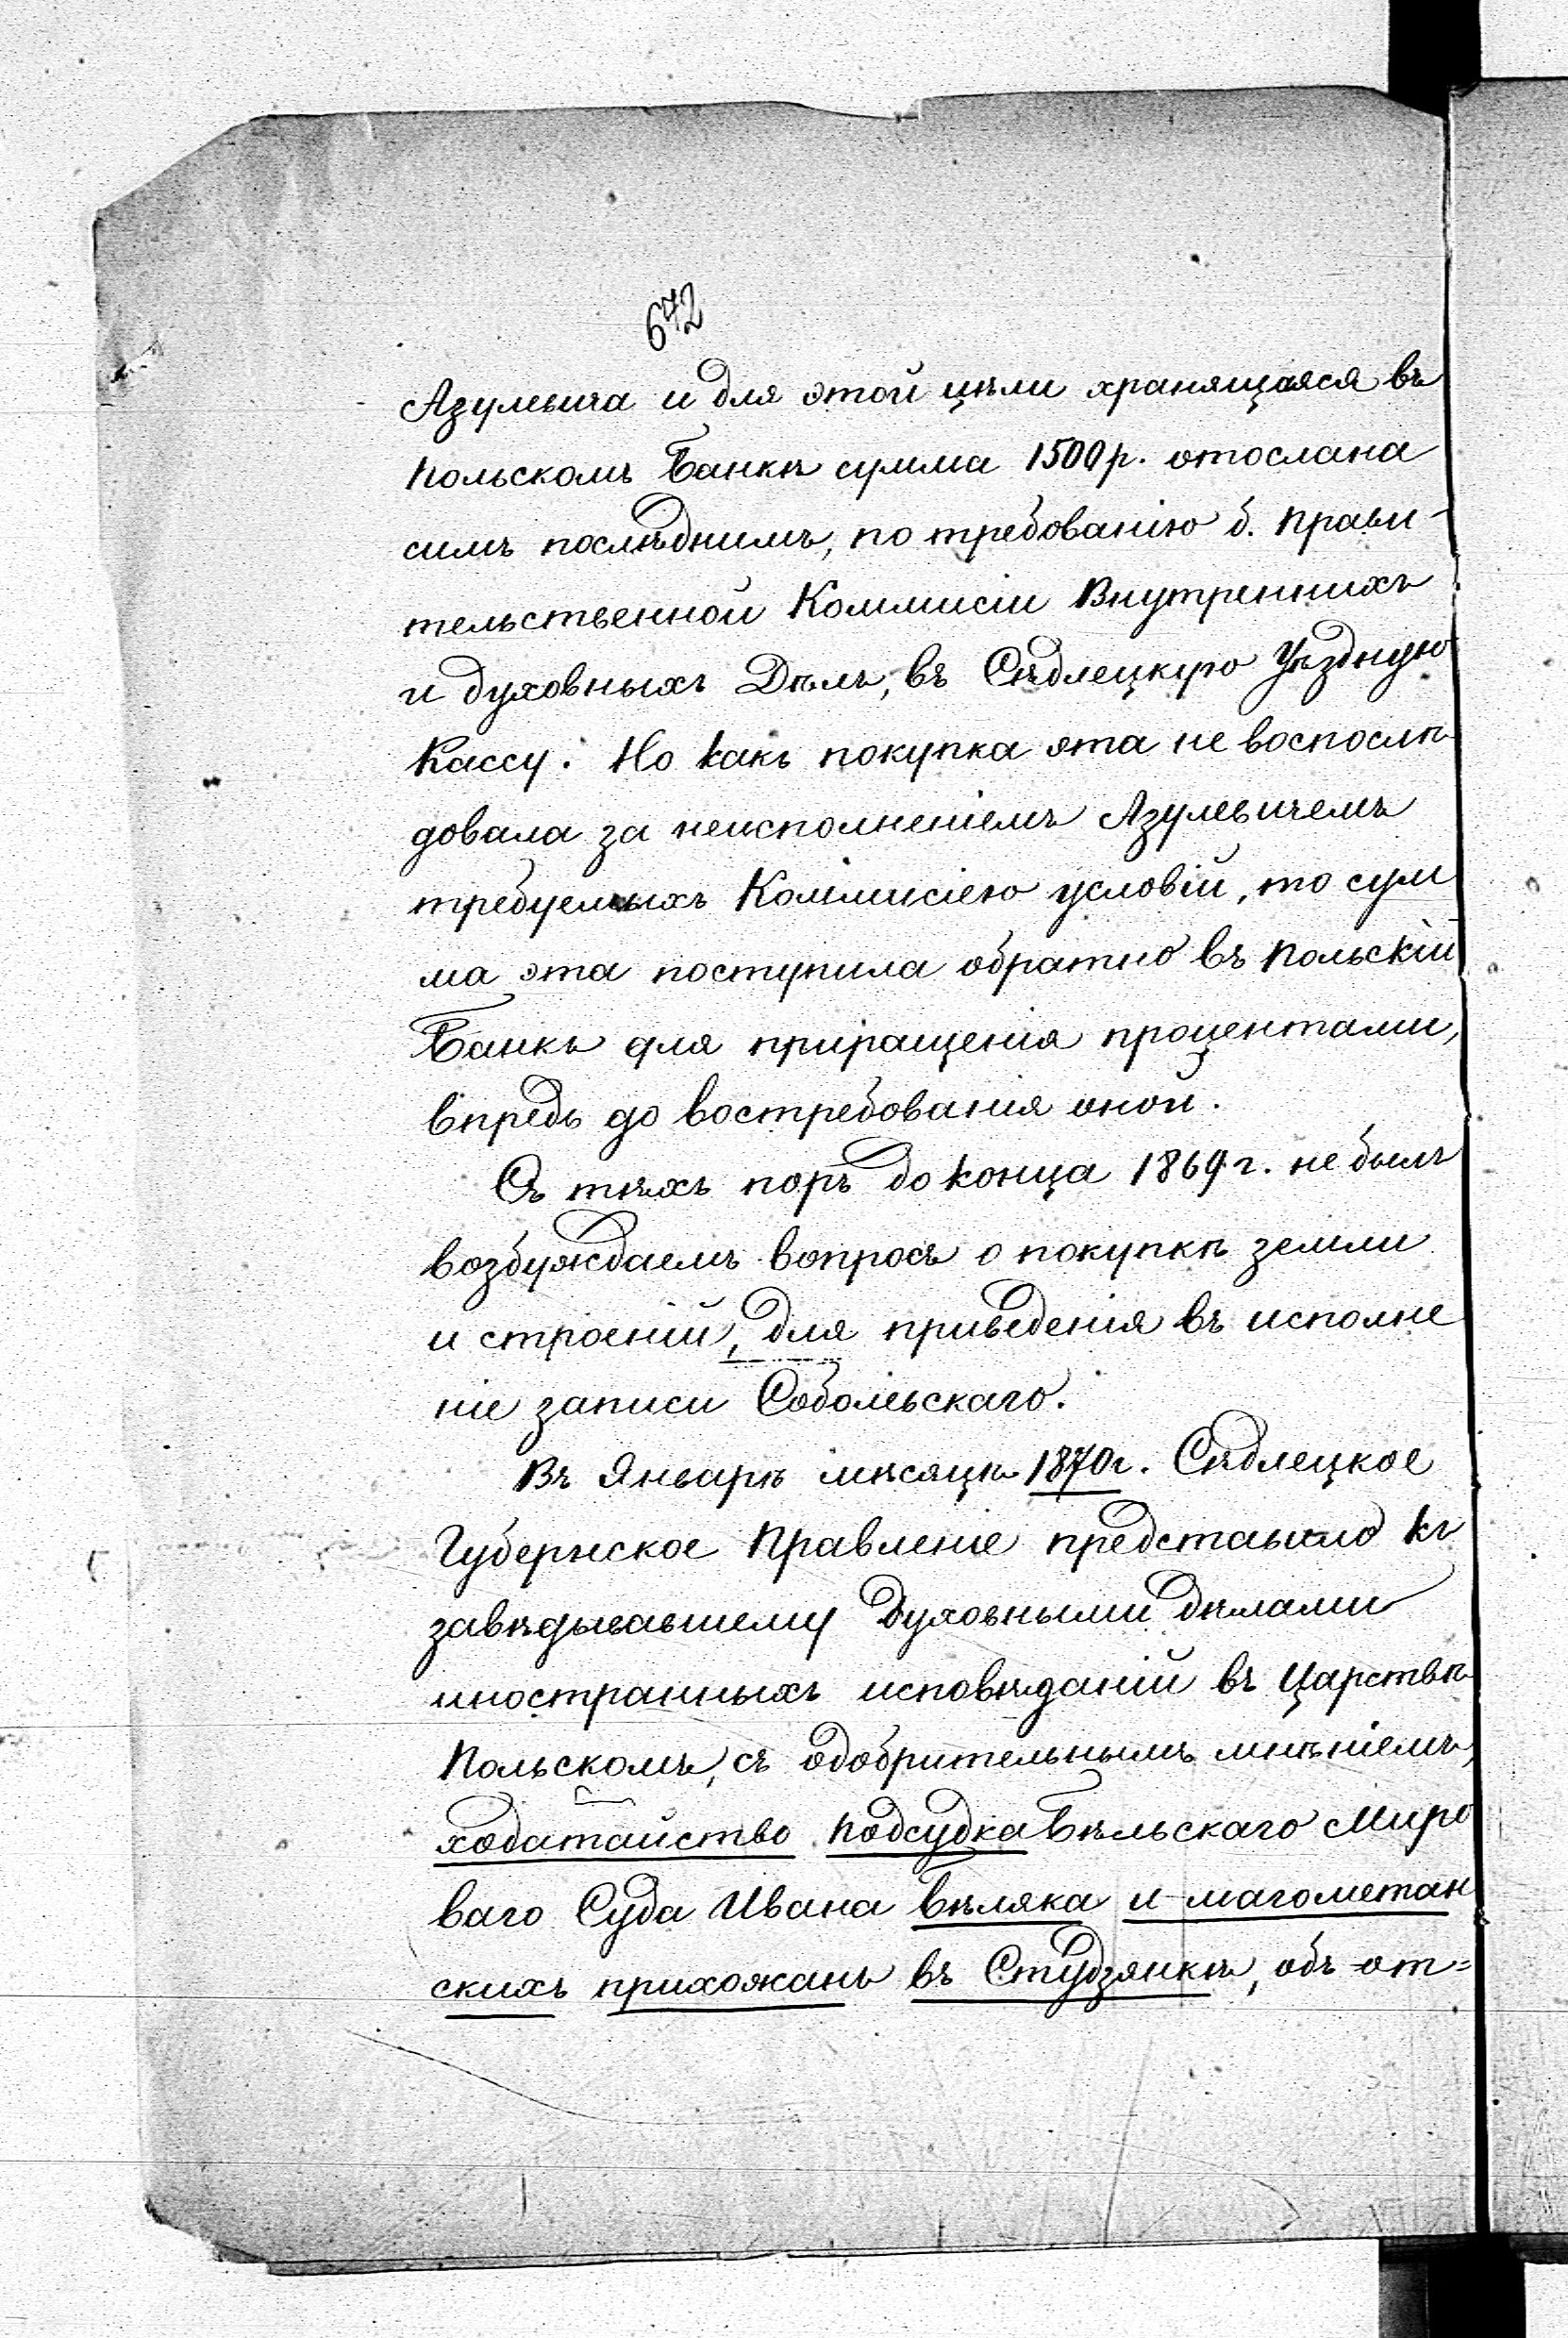 672
Азулевича и для этой цѣли хранящаяся въ
Польскомъ Банкѣ сумма 1500 р. отослана
симъ послѣднимъ, по требованію б. Прави-
тельственной Коммисіи Внутреннихъ
и духовныхъ Дѣлъ, въ Сѣдлецкую Уѣздную
Кассу. Но какъ покупка эта не воспослѣ
довала за неисполненіемъ Азулевичемъ
требуемыхъ Коммисіею условій, то сум
ма эта поступила обратно въ Польскій
Банкъ для приращенія процентами,
впредь до востребованія оной.
Съ тѣхъ поръ до конца 1869 г. не былъ
возбуждаемъ вопросъ о покупкѣ земли
и строеній, для приведенія въ исполне
ніе записи Соболевскаго.
Въ Январѣ мѣсяцѣ 1870 г. Сѣдлецкое
Губернское Правленіе представило къ
завѣдывавшему Духовными дѣлами
иностранныхъ исповѣданій въ Царствѣ
Польскомъ, съ одобрительнымъ мнѣніемъ,
ходатайство Подсудка Бѣльскаго Миро
ваго Суда Ивана Бѣляка и магометан
скихъ прихожанъ въ Студзянкѣ, объ от=